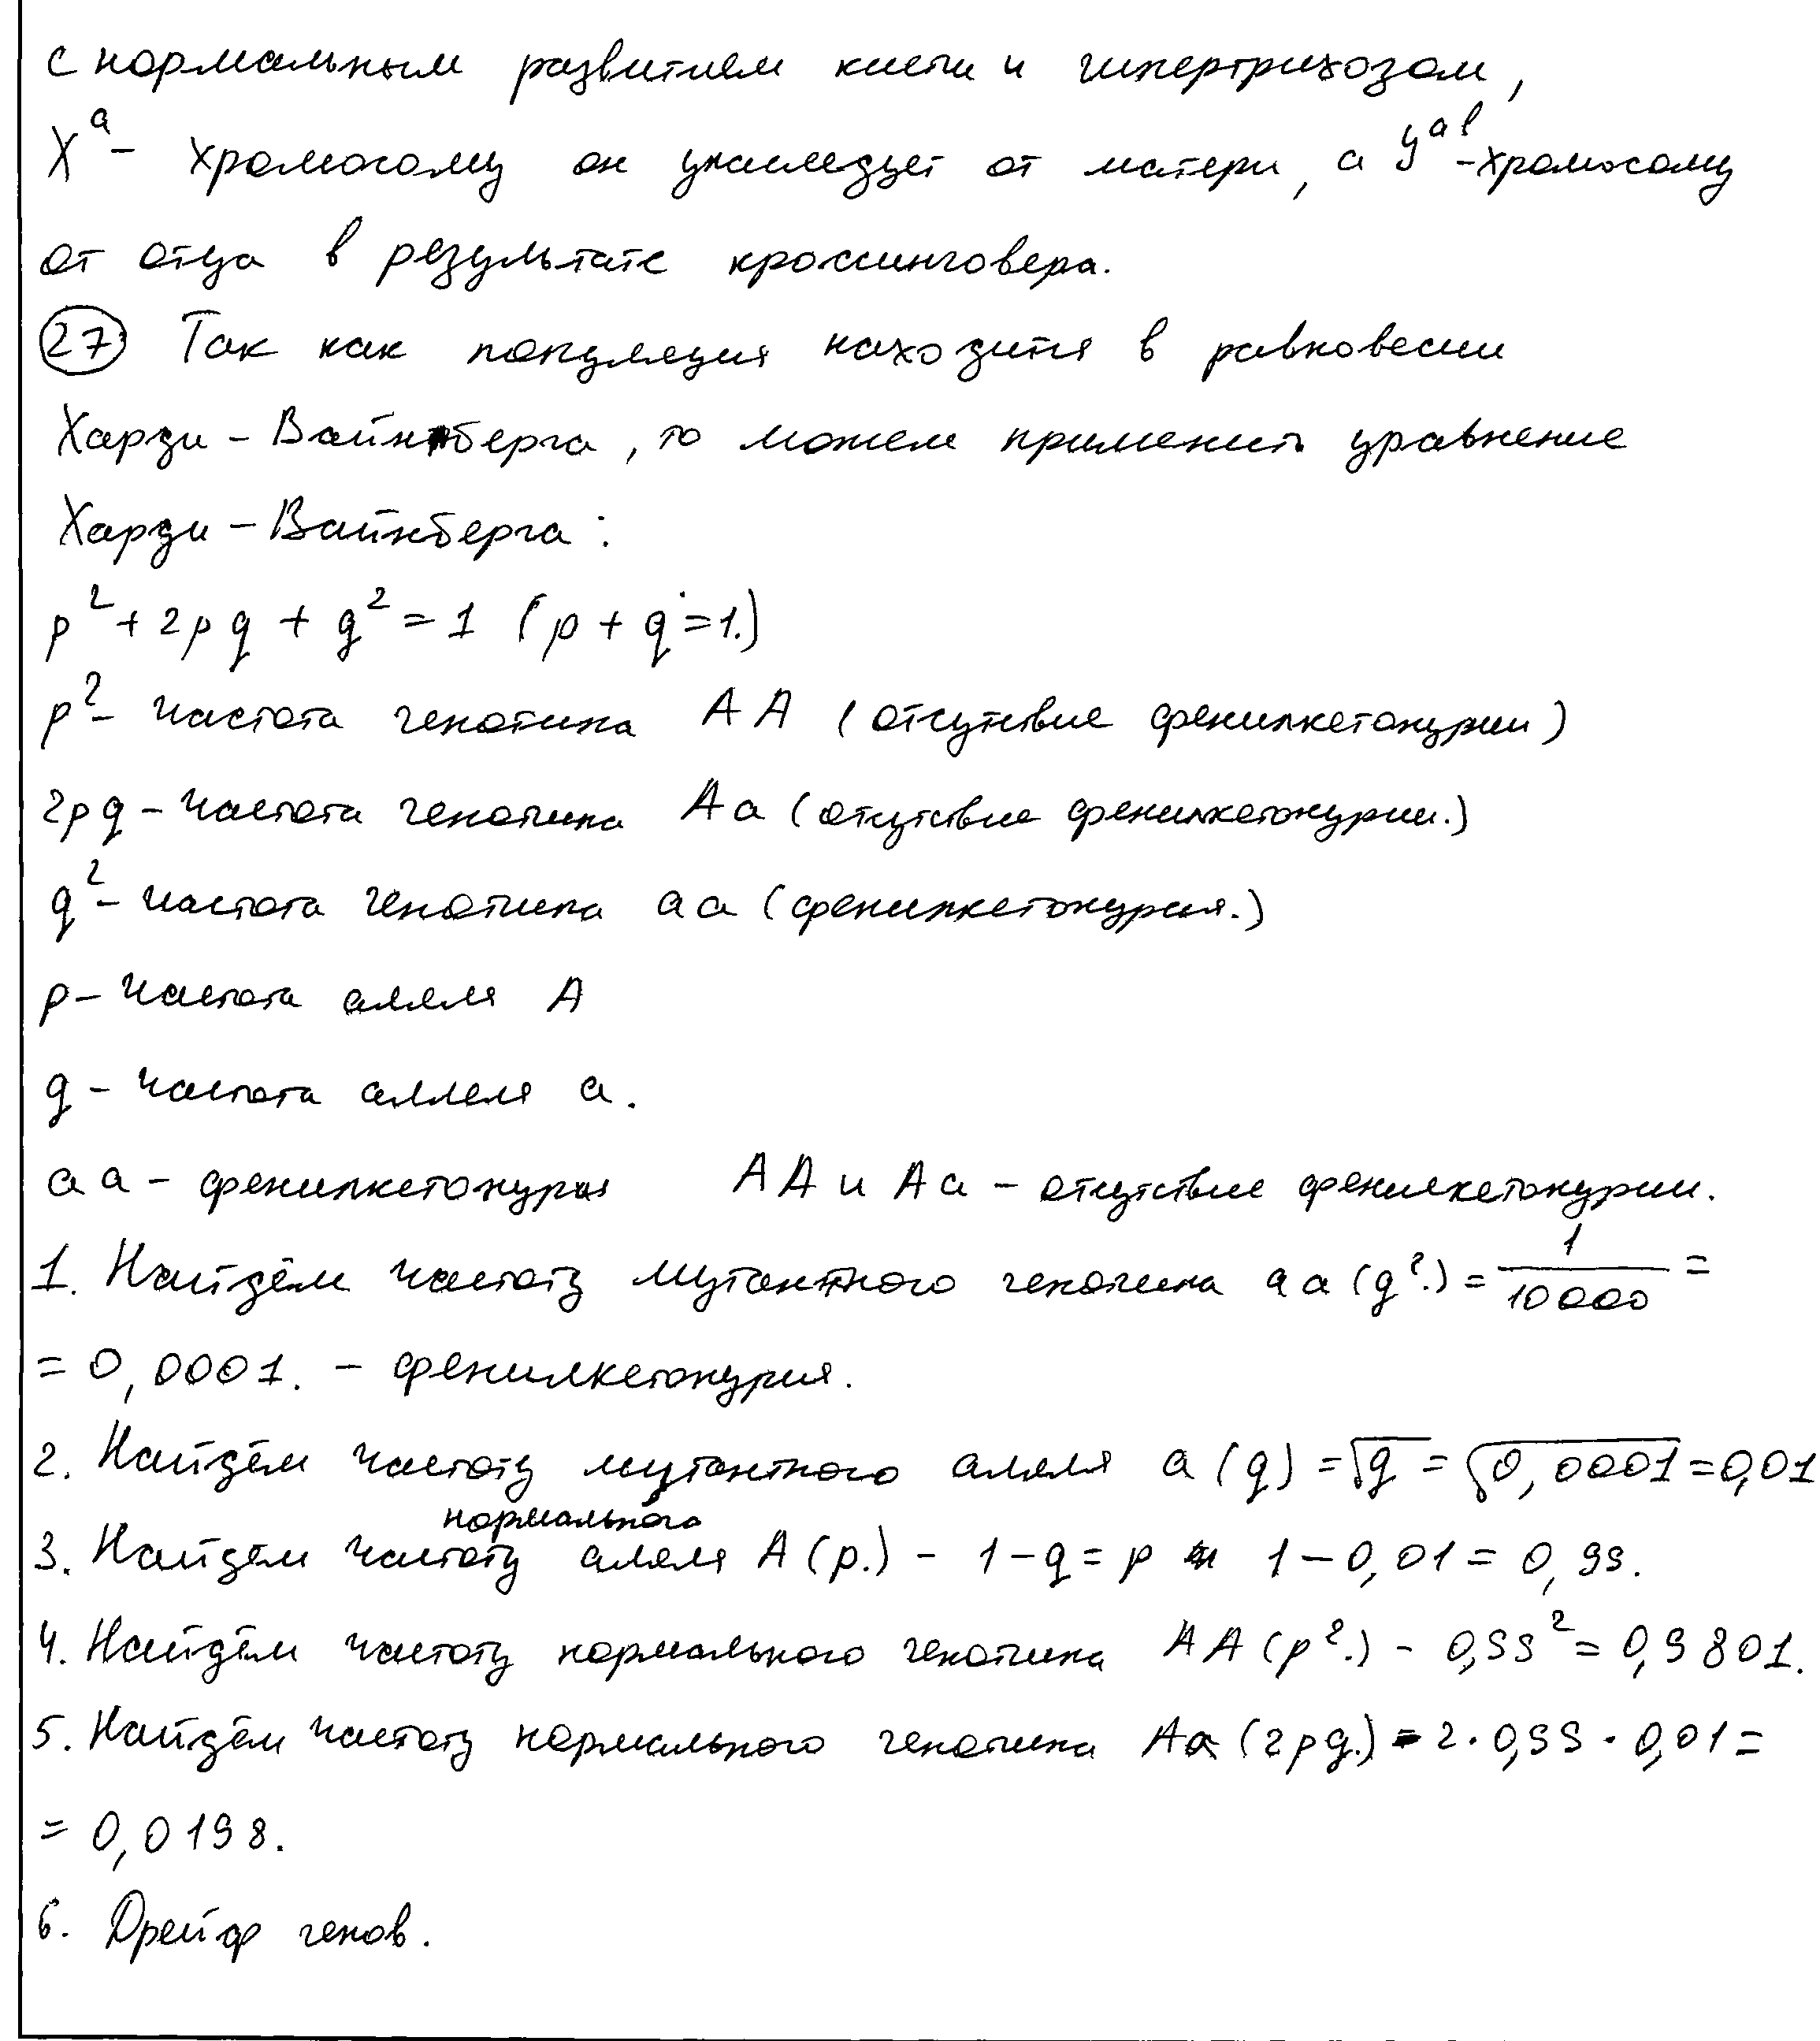 с нормальным развитием кисти и гипертрихозом,
Xᵃ – хромосому он унаследует от матери, а Yᵃᵇ – хромосому
от отца в результате кроссинговера.
27 Так как популяция находится в равновесии
Харди – Вайнберга, то можем применить уравнение
Харди – Вайнберга:
p² + 2pq + q² = 1 (p + q = 1.)
p² – частота генотипа AA (отсутствие фенилкетонурии)
2pq – частота генотипа Aa (отсутствие фенилкетонурии.)
q² – частота генотипа aa (фенилкетонурия.)
p – частота аллеля A
q – частота аллеля a.
aa – фенилкетонурия AA и Aa – отсутствие фенилкетонурии.
1. Найдём частоту мутантного генотипа aa (q².) = 1/10000 =
= 0,0001. – фенилкетонурия.
2. Найдём частоту мутантного аллеля a (q) = √q = √0,0001 = 0,01
3. Найдём частоту нормального аллеля A (p.) – 1 – q = p 1 – 0,01 = 0,99.
4. Найдём частоту нормального генотипа AA (p².) – 0,99² = 0,9801.
5. Найдём частоту нормального генотипа Aa (2pq.) = 2 · 0,99 · 0,01 =
= 0,0198.
6. Дрейф генов.